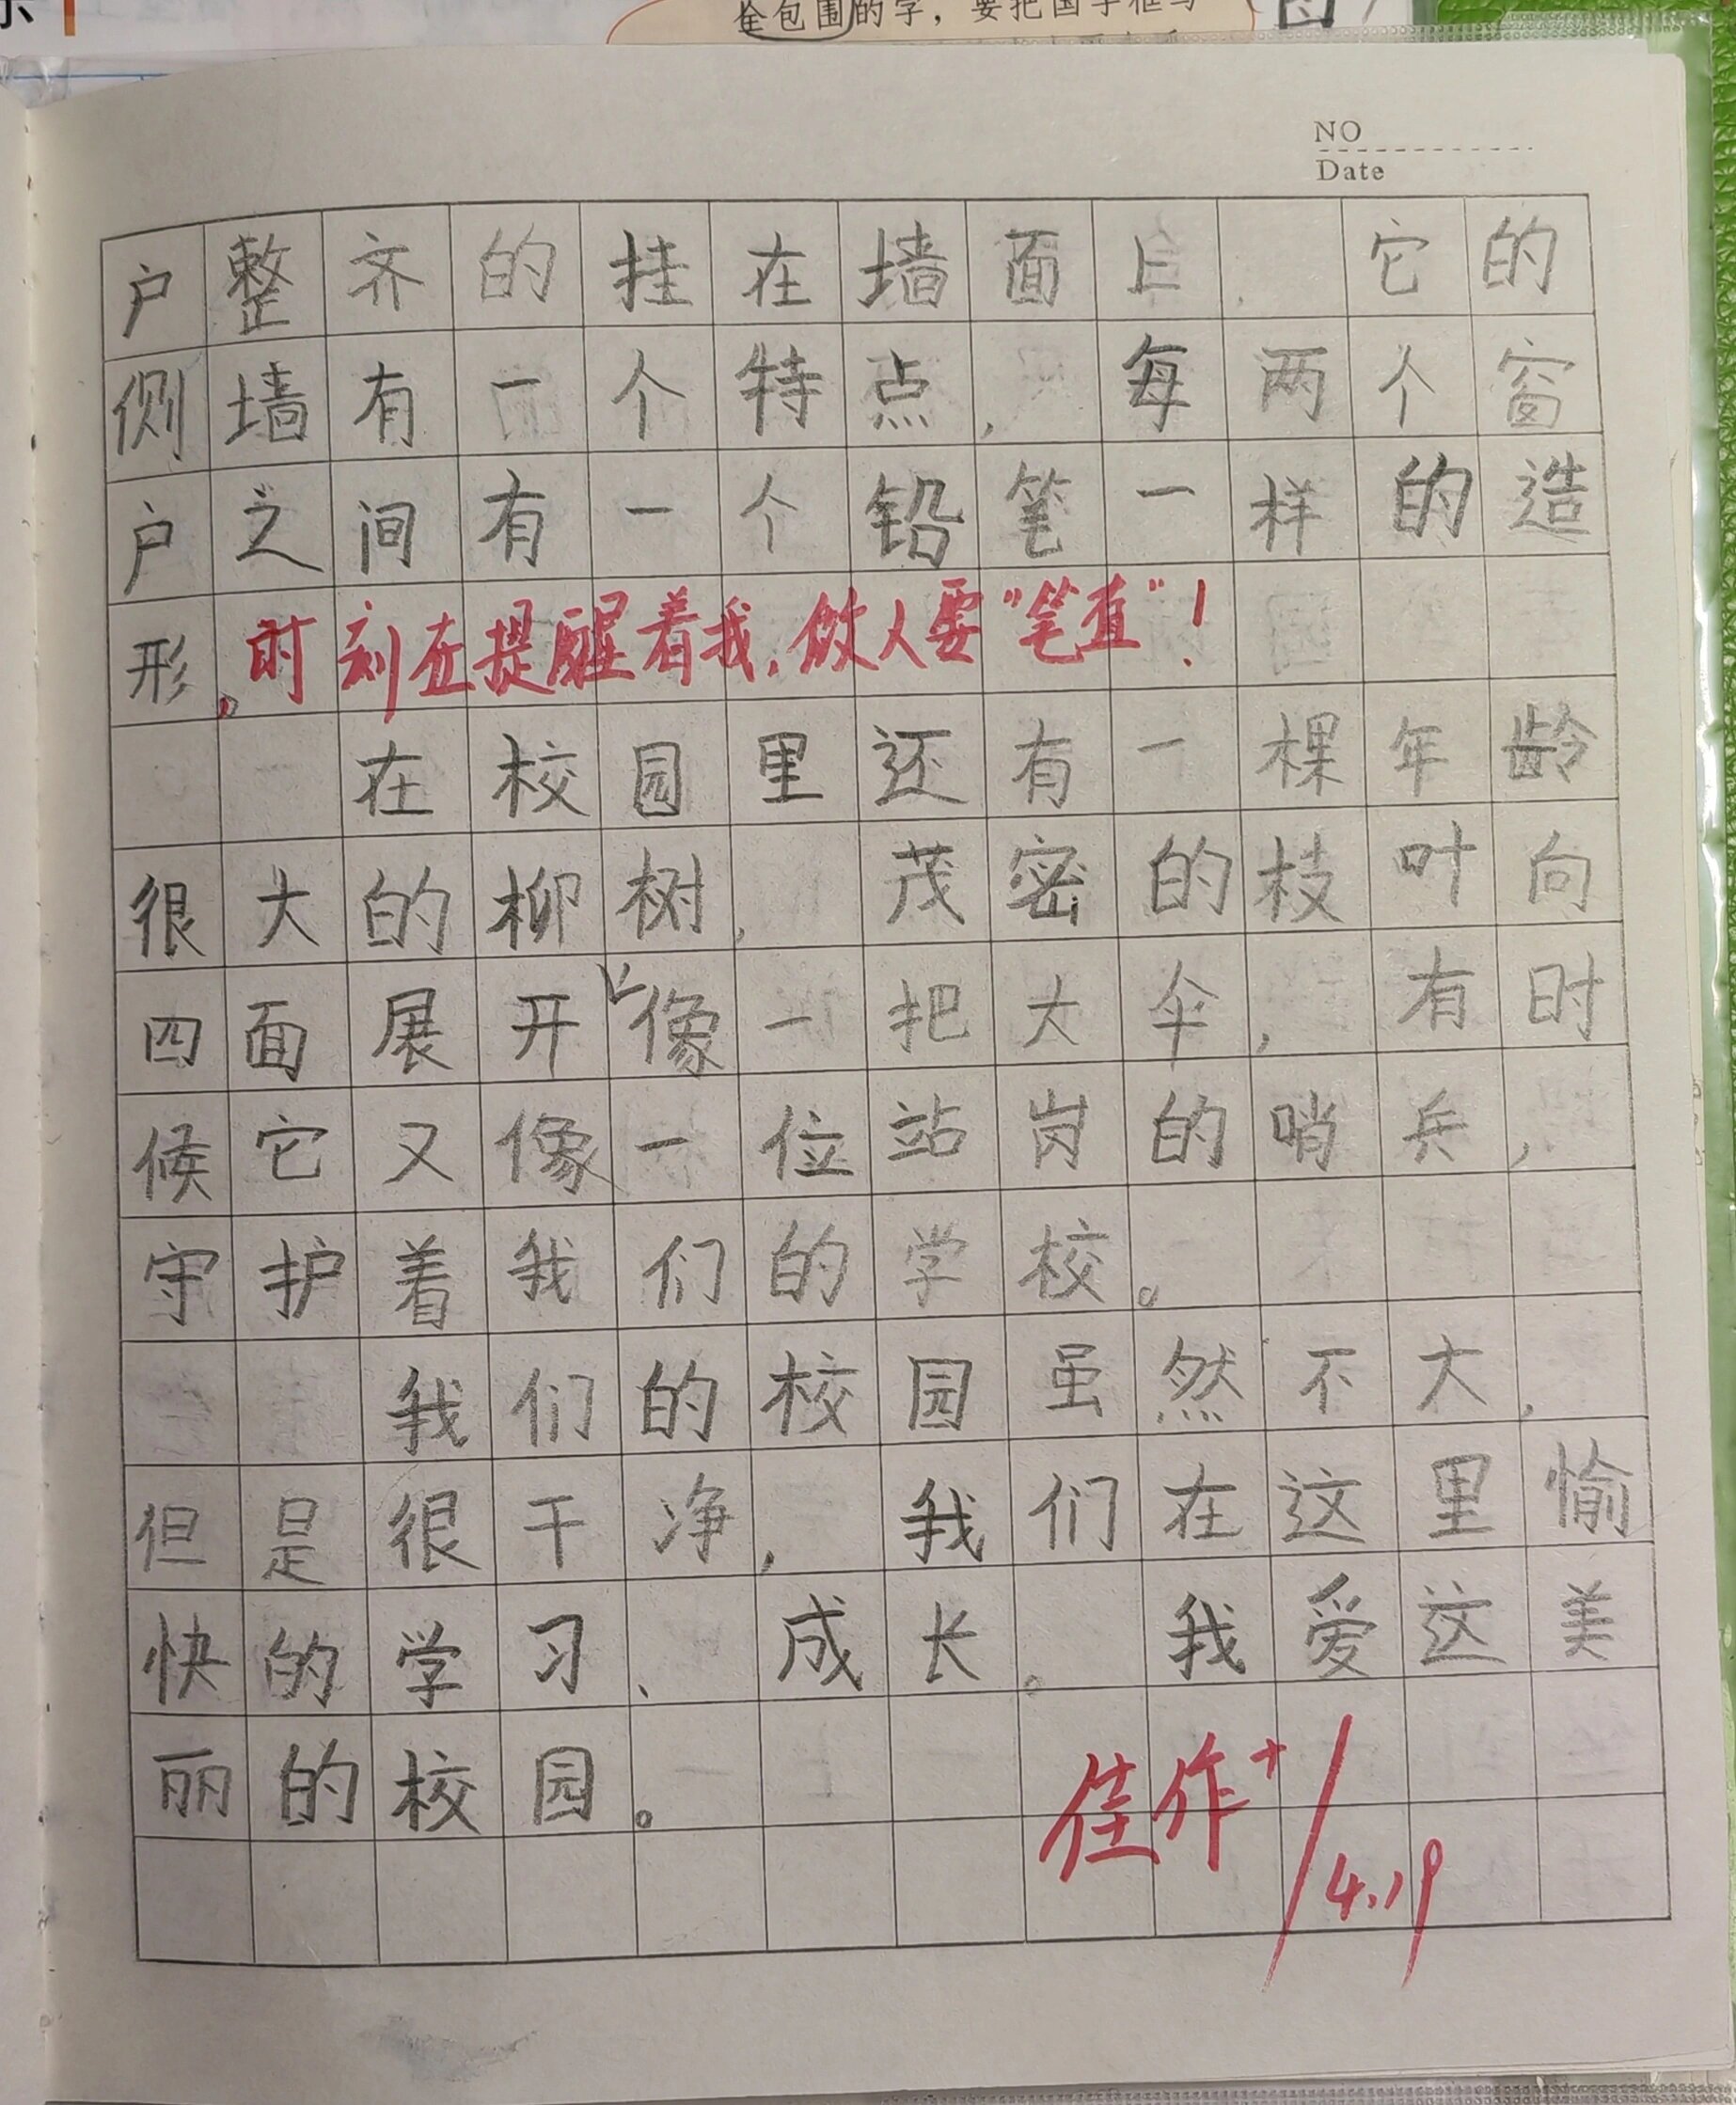 全包围的字，要把国字框写
NO
Date
户整齐的挂在墙面上，它的
侧墙有一个特点，每两个窗
户之间有一个铅笔一样的造
形。时刻在提醒着我，做人要“笔直”！
在校园里还有一棵年龄
很大的柳树，茂密的枝叶向
四面展开像一把大伞，有时
候它又像一位站岗的哨兵，
守护着我们的学校。
我们的校园虽然不大，
但是很干净，我们在这里愉
快的学习、成长。我爱这美
丽的校园。
佳作+
4.19